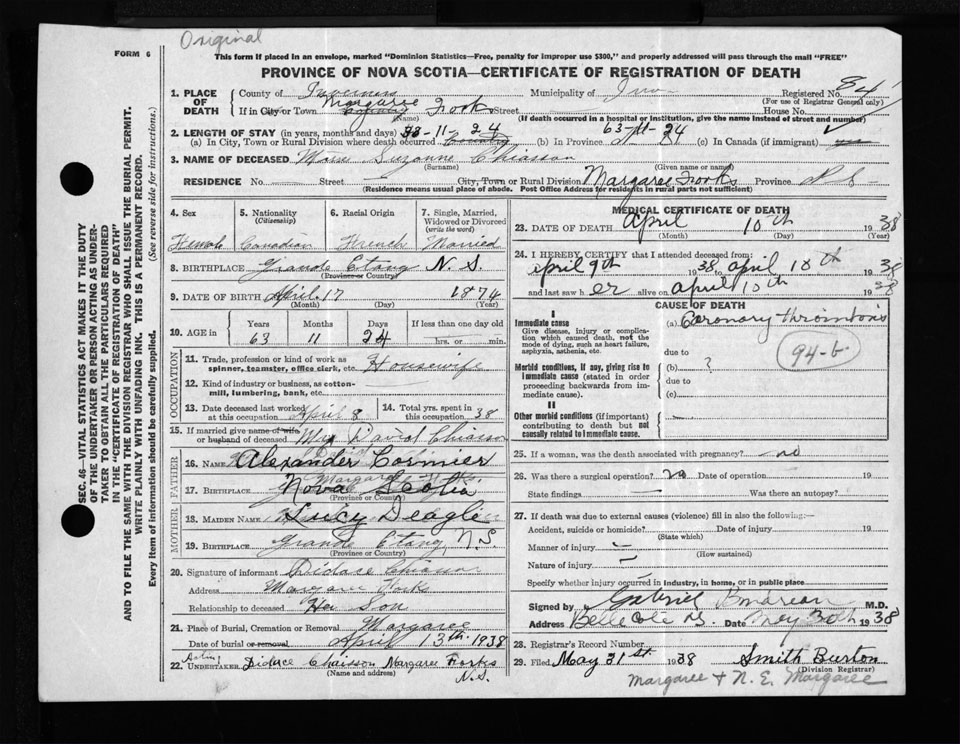 Original
FORM 6
This form if placed in an envelope, marked "Dominion Statistics—Free, penalty for improper use $300," and properly addressed will pass through the mail "FREE"
PROVINCE OF NOVA SCOTIA—CERTIFICATE OF REGISTRATION OF DEATH
SEC. 46—VITAL STATISTICS ACT MAKES IT THE DUTY
OF THE UNDERTAKER OR PERSON ACTING AS UNDER-
TAKER TO OBTAIN ALL THE PARTICULARS REQUIRED
IN THE "CERTIFICATE OF REGISTRATION OF DEATH"
AND TO FILE THE SAME WITH THE DIVISION REGISTRAR WHO SHALL ISSUE THE BURIAL PERMIT.
WRITE PLAINLY WITH UNFADING INK. THIS IS A PERMANENT RECORD.
Every item of information should be carefully supplied. (See reverse side for instructions).
1. PLACE OF DEATH County of Inverness Municipality of Inv Registered No. 84
(For use of Registrar General only)
If in City or Town Margaree Forks Street House No.
(Name) (If death occurred in a hospital or institution, give the name instead of street and number)
2. LENGTH OF STAY (in years, months and days) 11-24 63
(a) In City, Town or Rural Division where death occurred (b) In Province 24 (c) In Canada (if immigrant)
3. NAME OF DECEASED Suzanne Chiasson
(Surname) (Given name or name)
RESIDENCE No. Street City, Town or Rural Division Margaree Forks Province N.S.
(Residence means usual place of abode. Post Office Address for residents in rural parts not sufficient)
4. Sex
Female
5. Nationality (Citizenship)
Canadian
6. Racial Origin
French
7. Single, Married, Widowed or Divorced (write the word)
Married
8. BIRTHPLACE Grande Etang N.S.
(Province or Country)
9. DATE OF BIRTH April 17 1874
(Month) (Day) (Year)
10. AGE in Years Months Days If less than one day old
63 11 24 hrs. or min.
OCCUPATION
11. Trade, profession or kind of work as spinner, teamster, office clerk, etc. Housewife
12. Kind of industry or business, as cotton-mill, lumbering, bank, etc.
13. Date deceased last worked at this occupation April 8
14. Total yrs. spent in this occupation 38
15. If married give name of wife or husband of deceased David Chiasson
FATHER
16. NAME Alexander Cormier
17. BIRTHPLACE Nova Scotia
(Province or Country)
MOTHER
18. MAIDEN NAME Lucy Deagle
19. BIRTHPLACE Grande Etang, N.S.
(Province or Country)
20. Signature of informant Didace Chiasson
Address Margaree Fork
Relationship to deceased Her Son
21. Place of Burial, Cremation or Removal Margaree
Date of burial or removal April 13th 1938
22. Acting UNDERTAKER Didace Chaisson Margaree Forks
(Name and address) N.S.
MEDICAL CERTIFICATE OF DEATH
23. DATE OF DEATH April 10th 1938
(Month) (Day) (Year)
24. I HEREBY CERTIFY that I attended deceased from:
April 9th 1938 to April 10th 1938
and last saw her alive on April 10th 1938
CAUSE OF DEATH
I
Immediate cause
Give disease, injury or complication which caused death, not the mode of dying, such as heart failure, asphyxia, asthenia, etc.
(a) Coronary thrombosis
94-b.
due to
Morbid conditions, if any, giving rise to immediate cause (stated in order proceeding backwards from immediate cause).
(b) ?
due to
(c)
II
Other morbid conditions (if important) contributing to death but not causally related to immediate cause.
25. If a woman, was the death associated with pregnancy? no
26. Was there a surgical operation? no Date of operation 19
State findings Was there an autopsy?
27. If death was due to external causes (violence) fill in also the following:—
Accident, suicide or homicide? Date of injury 19
(State which)
Manner of injury
(How sustained)
Nature of injury
Specify whether injury occurred in industry, in home, or in public place
Signed by Gabriel Boudreau M.D.
Address Belle Cote N.S. Date May 30th 1938
28. Registrar's Record Number
29. Filed May 31st 1938 Smith Burton
(Division Registrar)
Margaree & N. E. Margaree